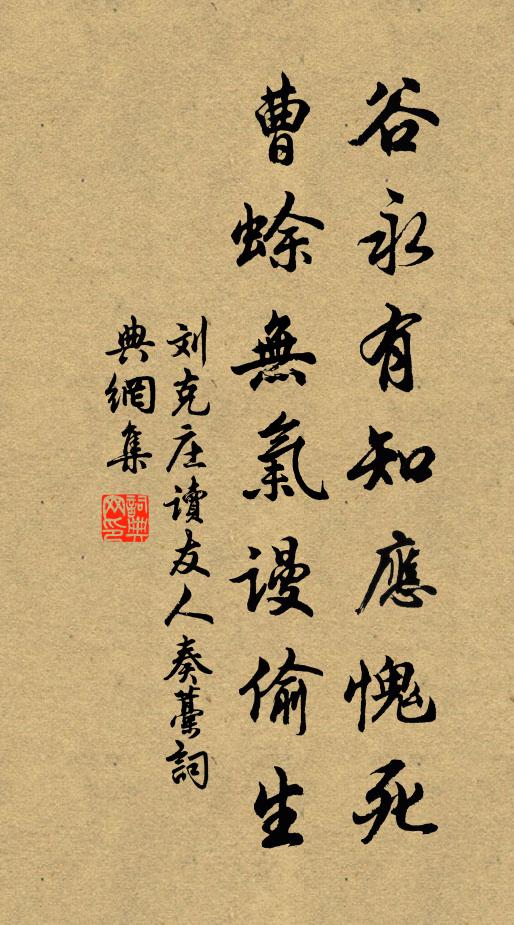 谷永有知應愧死
曹蜍無氣謾偷生
刘克庄讀友人奏藁詞
典網集
詞典網印